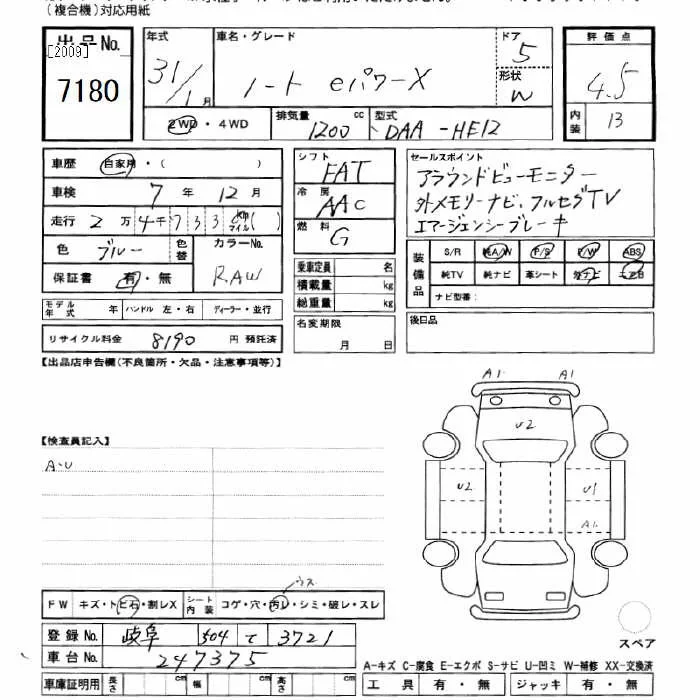 (複合機)対応用紙
出品No.
[2009]
7180
年式
31/1月
車名・グレード
ノート eパワーX
ドア
5
形状
W
評価点
4.5
内装
13
2WD・4WD
排気量
1200 cc
型式
DAA-HE12
車歴
自家用・( )
車検
7年 12月
走行
2万4千733 km マイル( )
色
ブルー
色替
カラーNo.
RAW
保証書
有・無
モデル年式 年
ハンドル 左・右
ディーラー・並行
リサイクル料金 8190 円 預託済
シフト
FAT
冷房
AAC
燃料
G
乗車定員 名
積載量 kg
総重量 kg
名変期限
月 日
セールスポイント
アラウンドビューモニター
外メモリーナビ、フルセグTV
エマージェンシーブレーキ
装備品
S/R 純A/W P/S P/W ABS
純TV 純ナビ 革シート 社ナビ エアB
ナビ型番:
後日品
【出品店申告欄(不良箇所・欠品・注意事項等)】
【検査員記入】
A・U
A1 A1
U2
U2
U1
A1
スペア
ウス
FW キズ・トビ石・割レX
シート内装 コゲ・穴・汚レ・シミ・破レ・スレ
登録No. 岐阜 504 て 3721
車台No. 247375
車庫証明用 長さ cm 幅 cm 高さ cm
A-キズ C-腐食 E-エクボ S-サビ U-凹ミ W-補修 XX-交換済
工具 有・無 ジャッキ 有・無